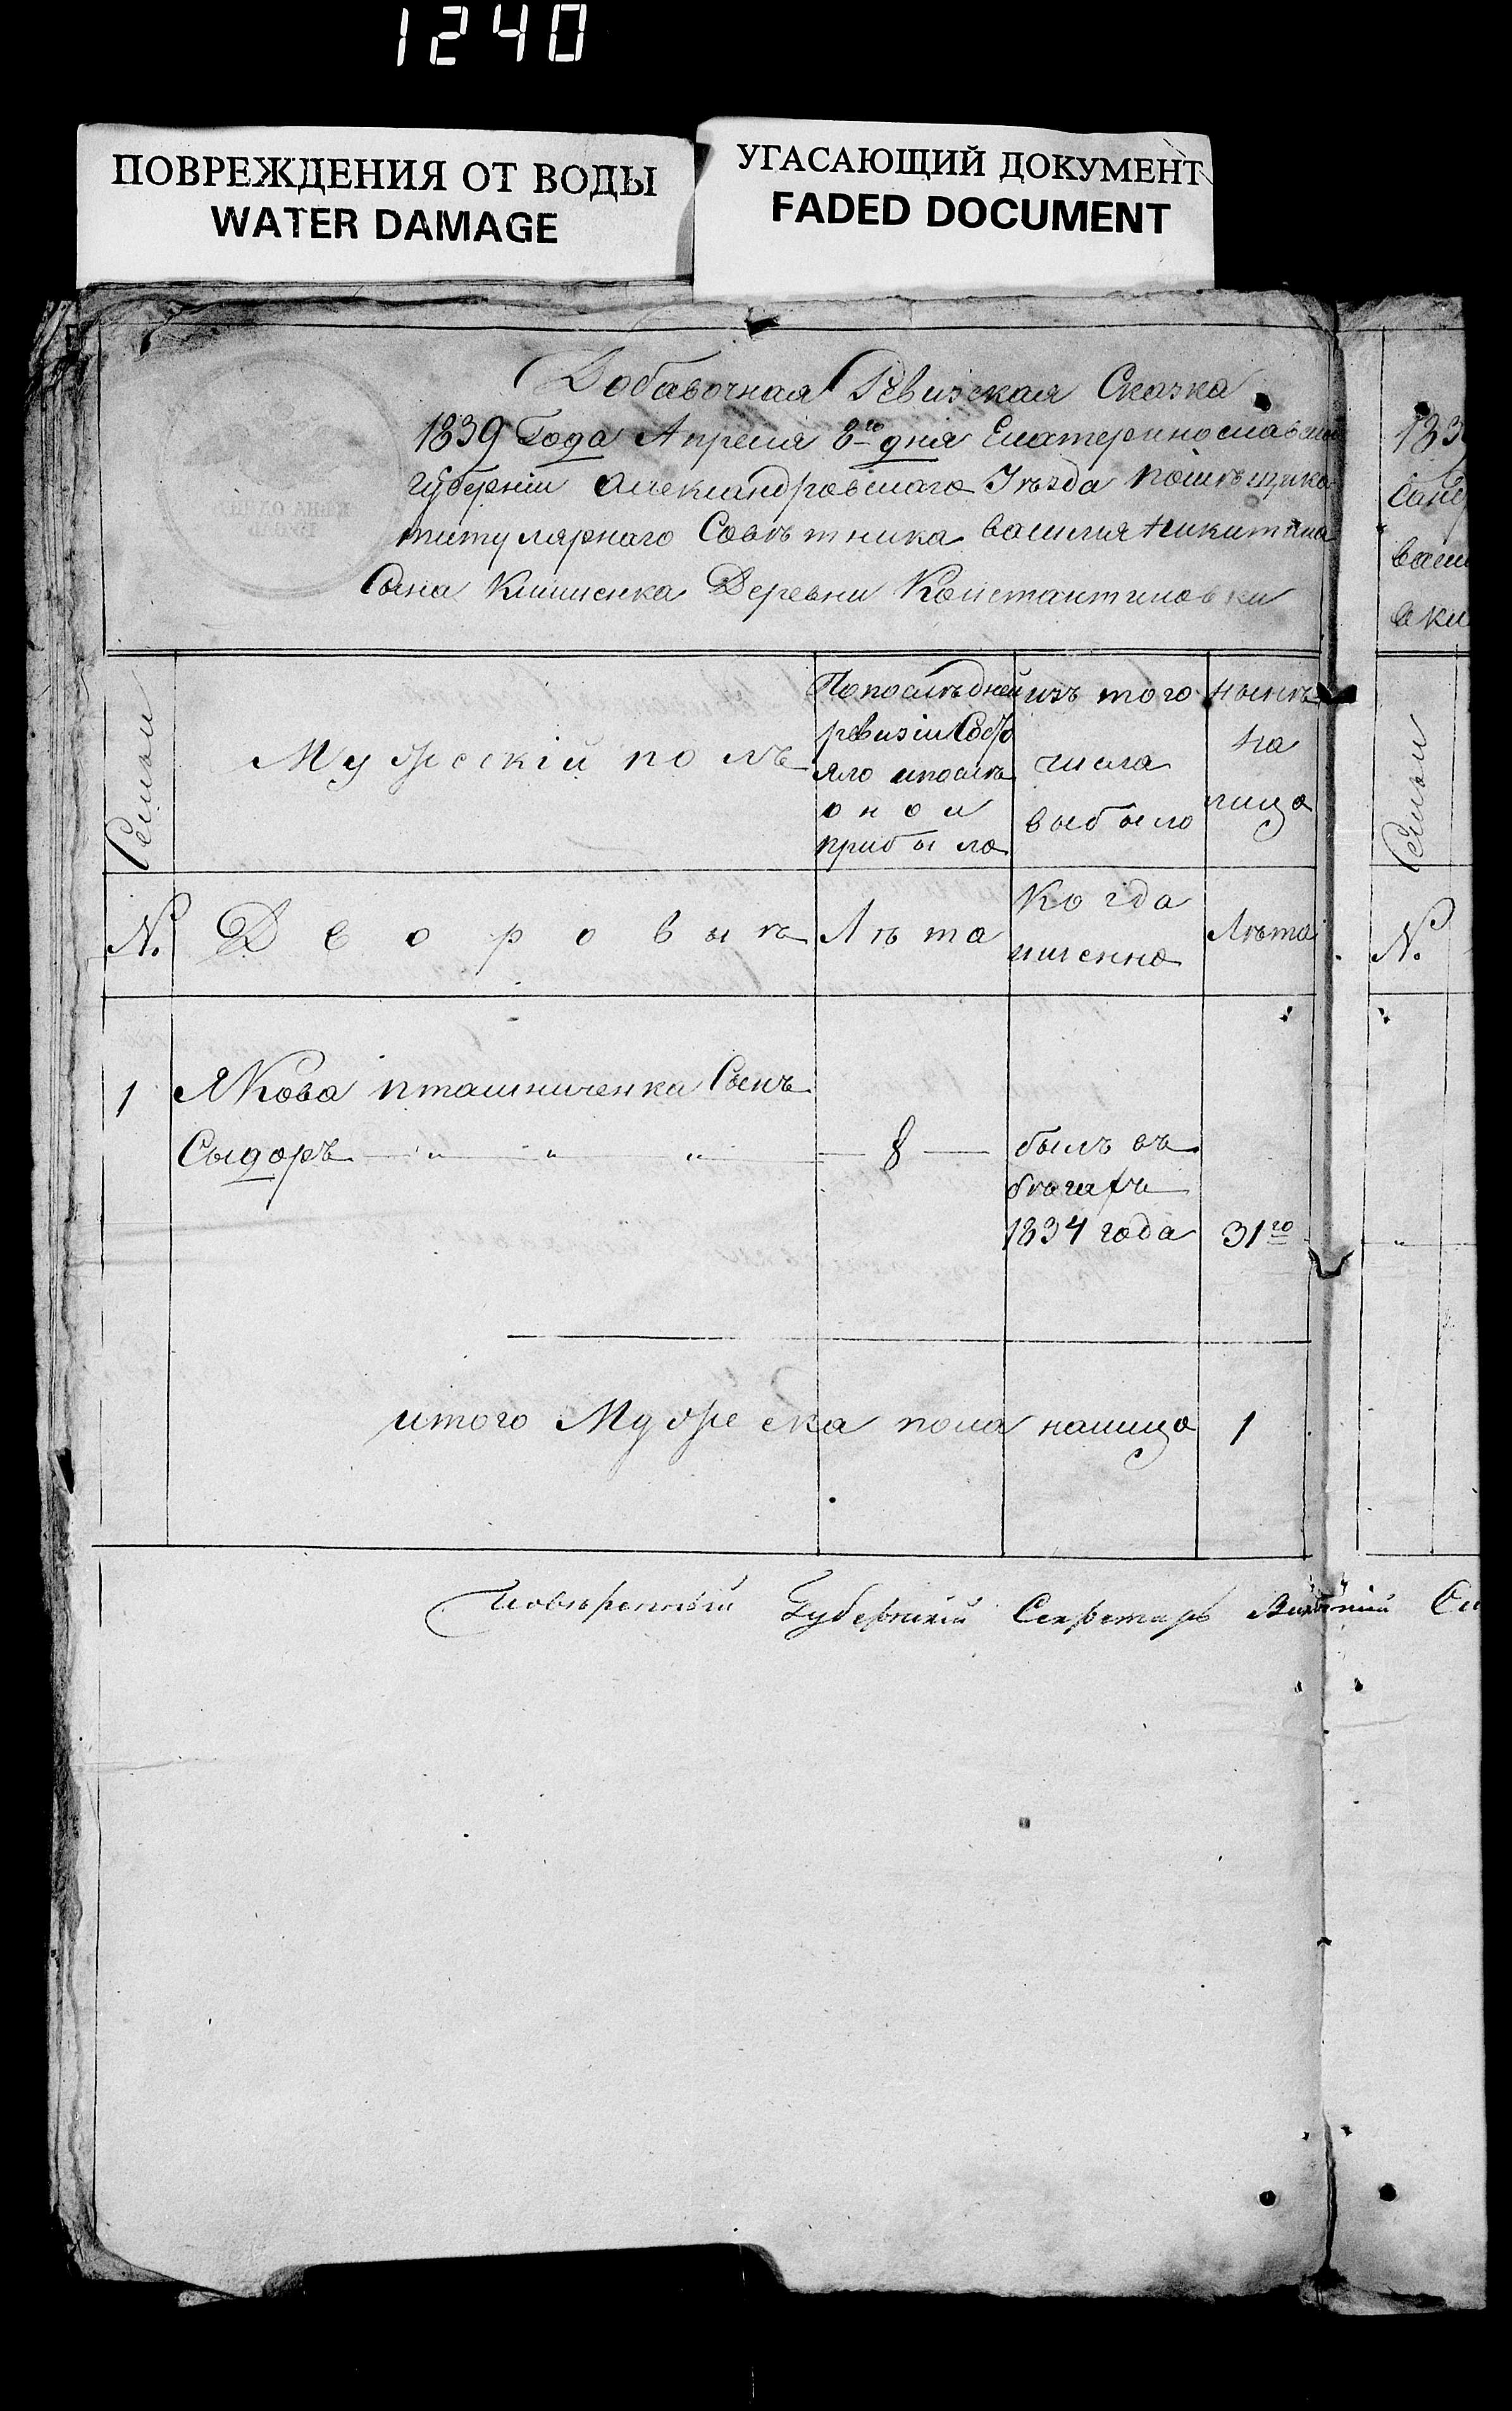 1240
ПОВРЕЖДЕНИЯ ОТ ВОДЫ
WATER DAMAGE
УГАСАЮЩИЙ ДОКУМЕНТ
FADED DOCUMENT
Добавочная Ревизская Сказка
1839 Года Апреля 8го дня Екатеринославской
Губерніи Александровскаго Уѣзда помѣщика
титулярнаго Совѣтника василия Никитина
Сына Кишненка Деревни Константиновки
Семьи
Мужескій полъ
По последней
ревизіи Состо
яло и послѣ
оной
прибыло
изъ того
числа
выбыло
нынѣ
на
лицо
№.
Дворовыхъ
Лѣта
Когда
именно
Лѣта
1
Якова пташниченка Сынъ
Сыдоръ " " " 8
былъ въ
бѣгахъ
1834 года
31го
итого Мужеска пола налицо 1
Повѣренный Губернскій Секретарь
183
Семьи
№.